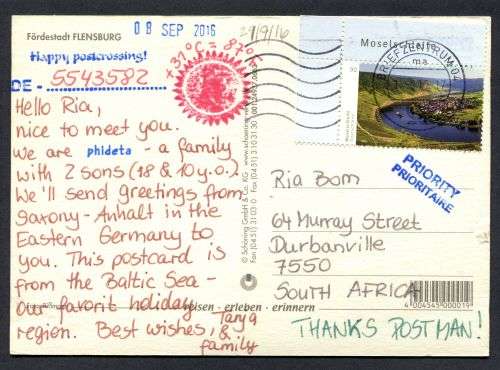 Fördestadt FLENSBURG
08 SEP 2016
29/9/16
Happy postcrossing!
31°C = 87°F
DE - 5543582
Hello Ria,
nice to meet you.
We are phideta - a family
with 2 sons (18 & 10 y.o.).
We'll send greetings from
Saxony-Anhalt in the
Eastern Germany to
you. This postcard is
from the Baltic Sea -
our favorit holiday
region. Best wishes, Tanja
& family
reisen - erleben - erinnern
© Schöning GmbH & Co. KG
Moselschleife
BRIEFZENTRUM 04
PRIORITY
PRIORITAIRE
Ria Bom
64 Murray Street
Durbanville
7550
SOUTH AFRICA
4 004545 000019
THANKS POSTMAN!